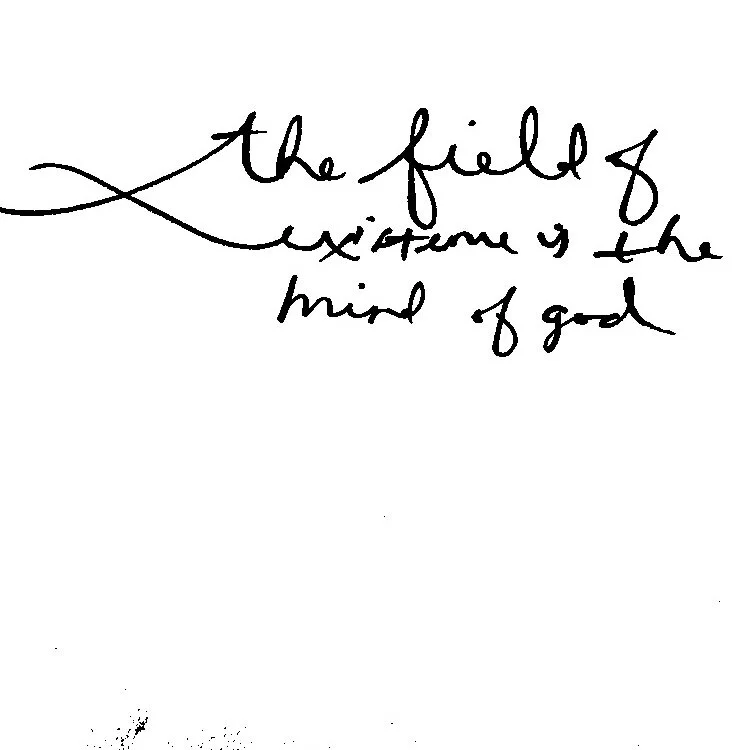 the field of
existence is the
mind of god